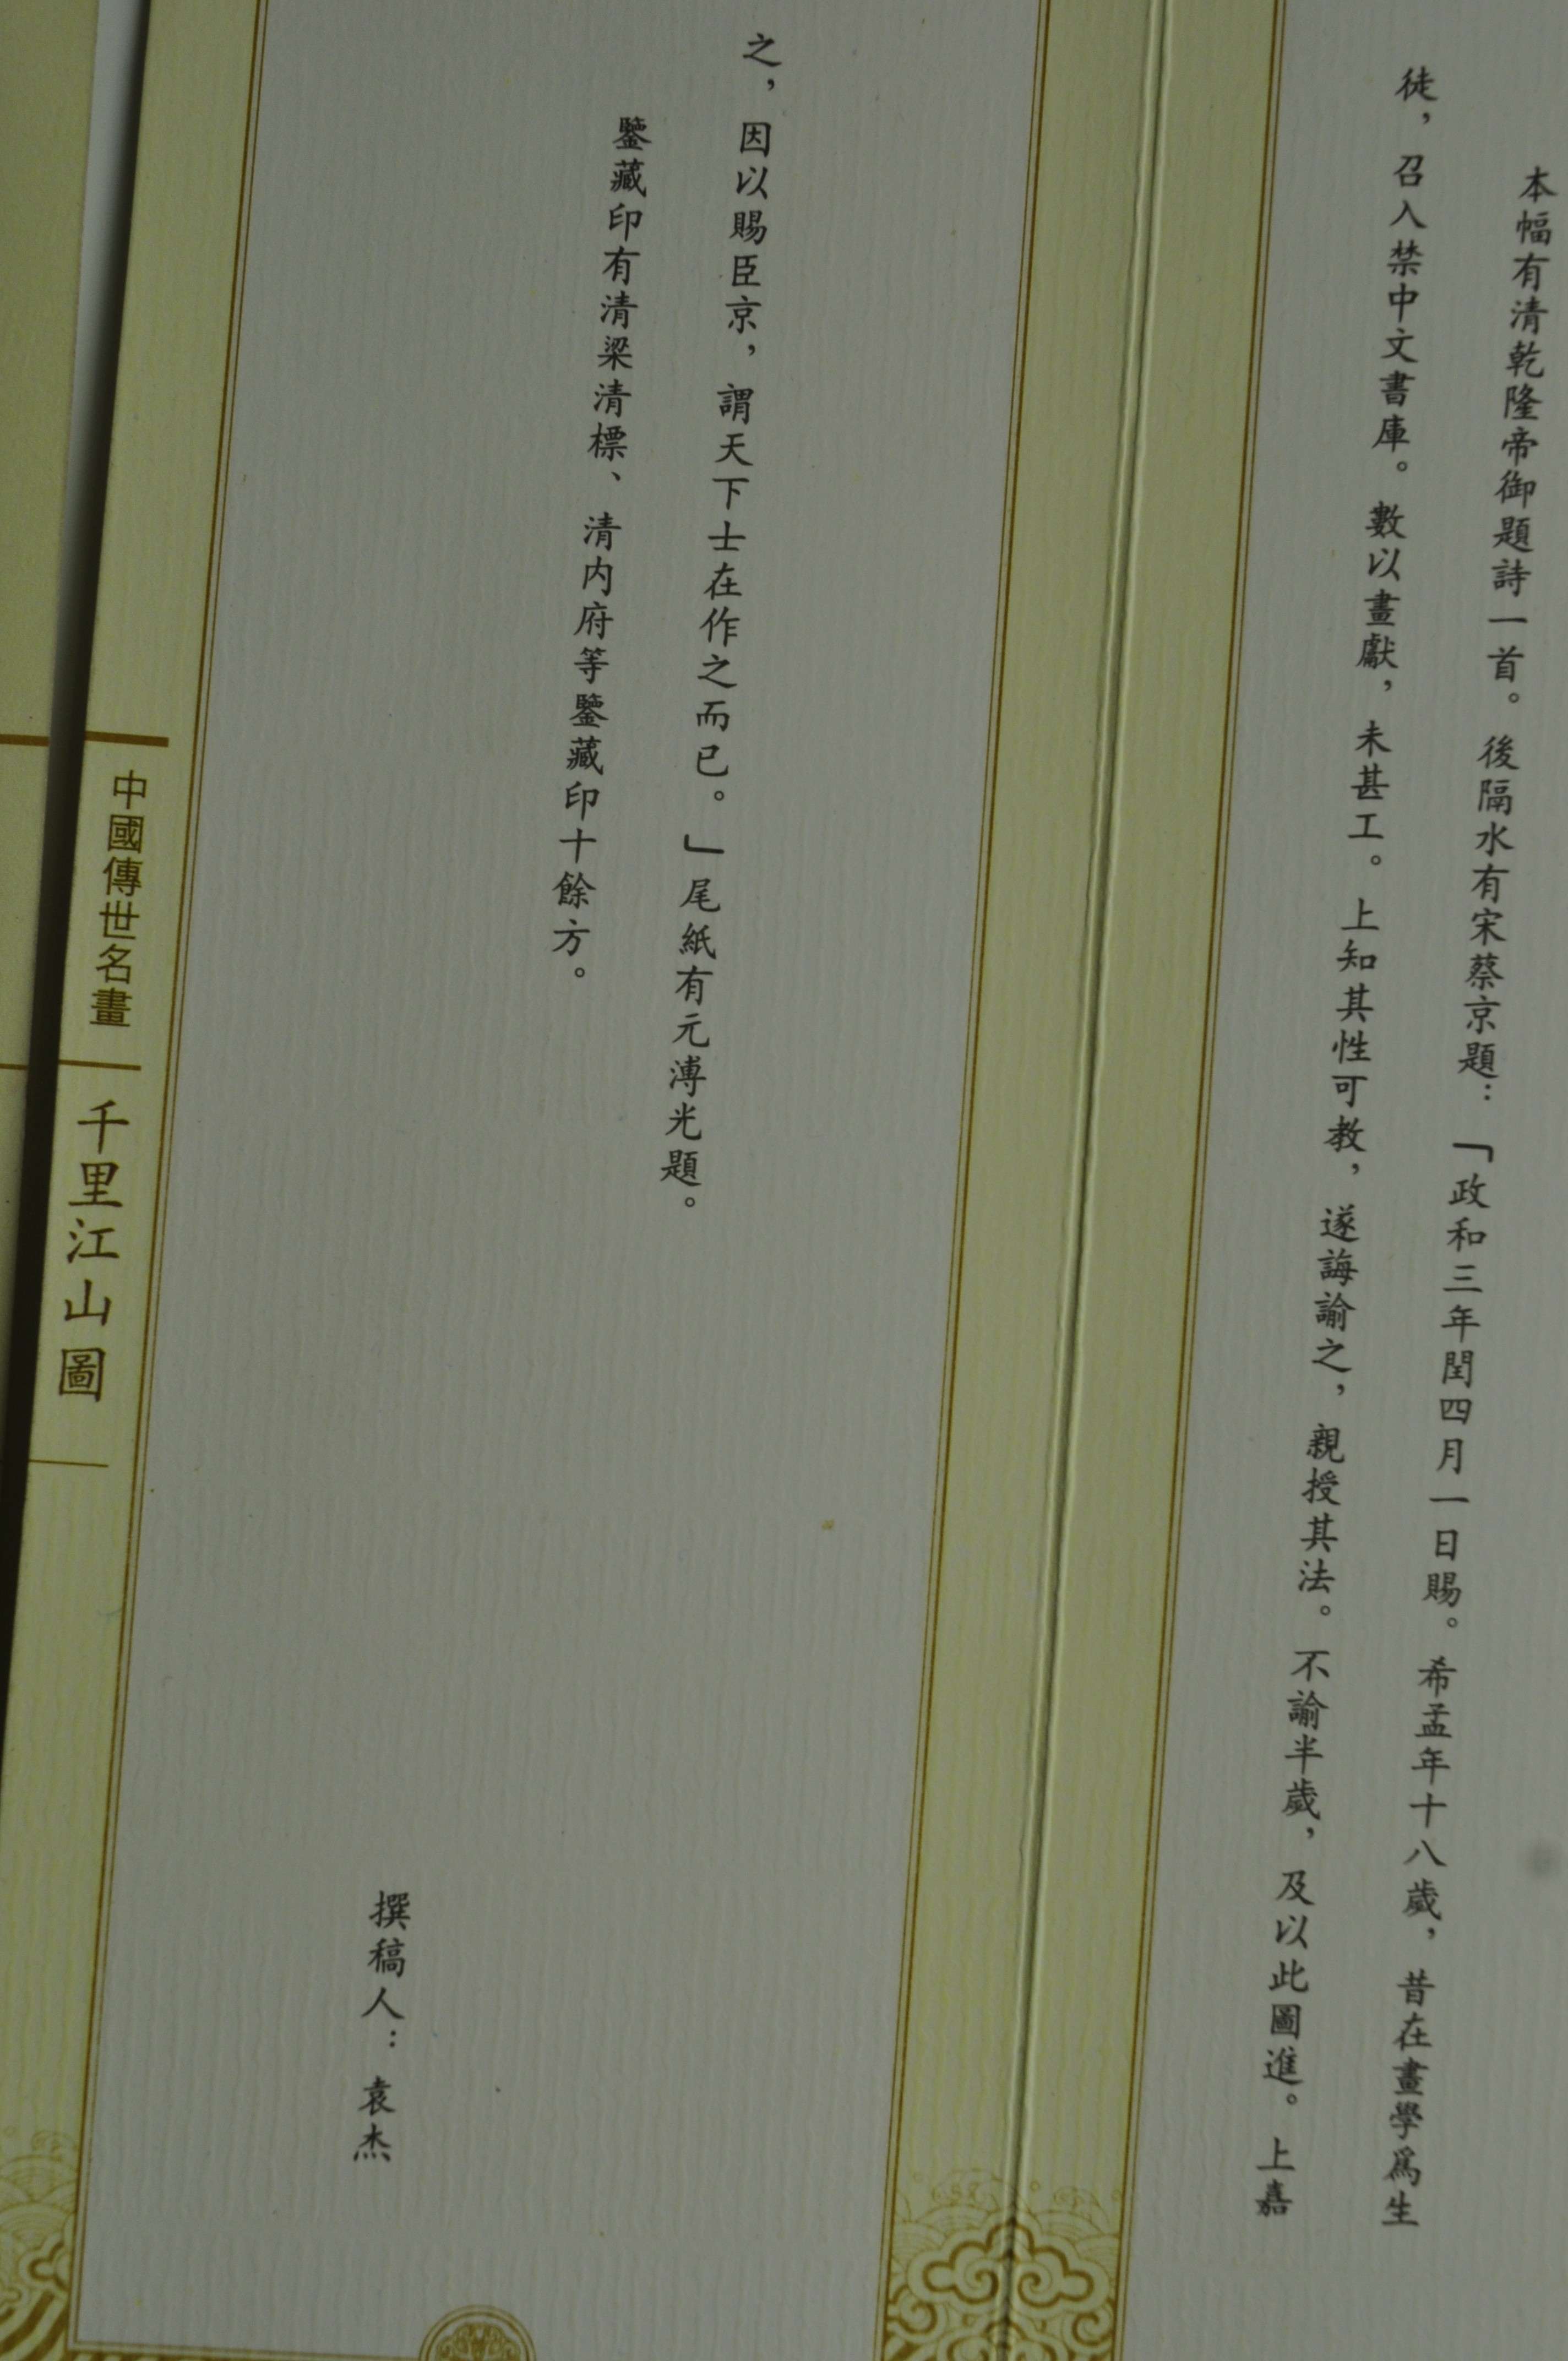 本幅有清乾隆帝御題詩一首。後隔水有宋蔡京題：「政和三年閏四月一日賜。希孟年十八歲，昔在畫學爲生
徒，召入禁中文書庫。數以畫獻，未甚工。上知其性可教，遂誨諭之，親授其法。不諭半歲，及以此圖進。上嘉
之，因以賜臣京，謂天下士在作之而已。」尾紙有元溥光題。
鑒藏印有清梁清標、清内府等鑒藏印十餘方。
撰稿人：袁杰
中國傳世名畫
千里江山圖